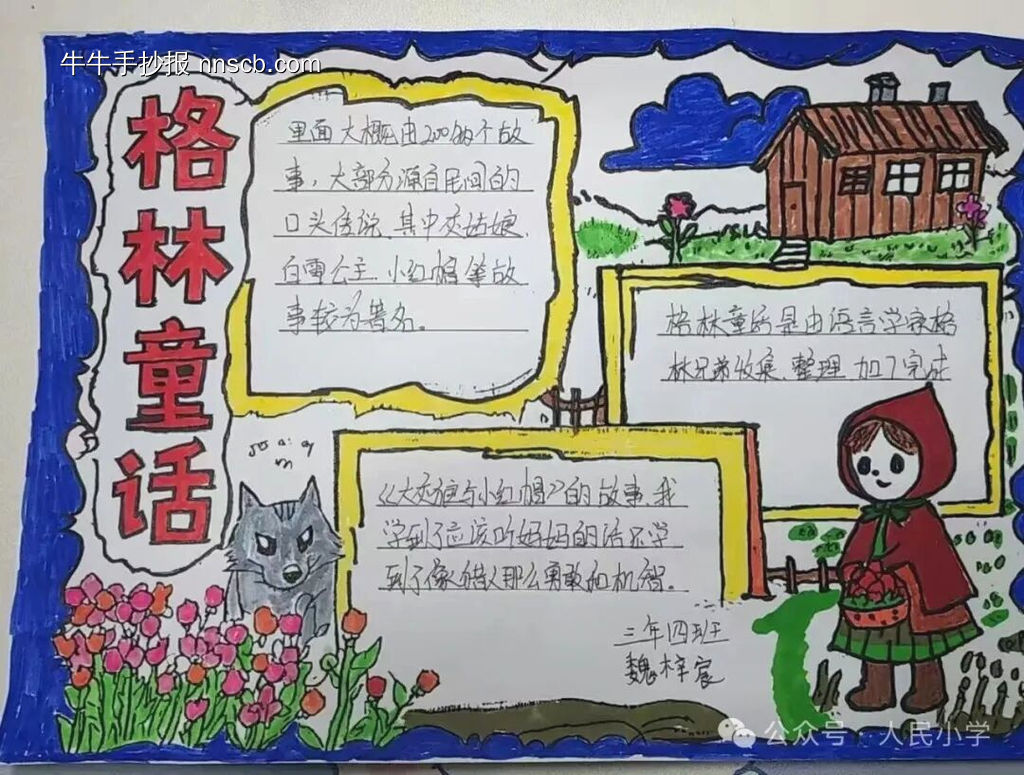 牛牛手抄报 nnscb.com
格林童话
里面大概由200多个故
事，大部分源自民间的
口头传说，其中灰姑娘、
白雪公主、小红帽等故
事较为著名。
格林童话是由语言学家格
林兄弟收集、整理、加工完成
《大灰狼与小红帽》的故事，我
学到了应该听妈妈的话，还学
到了像猎人那么勇敢和机智。
三年四班
魏梓宸
公众号·人民小学